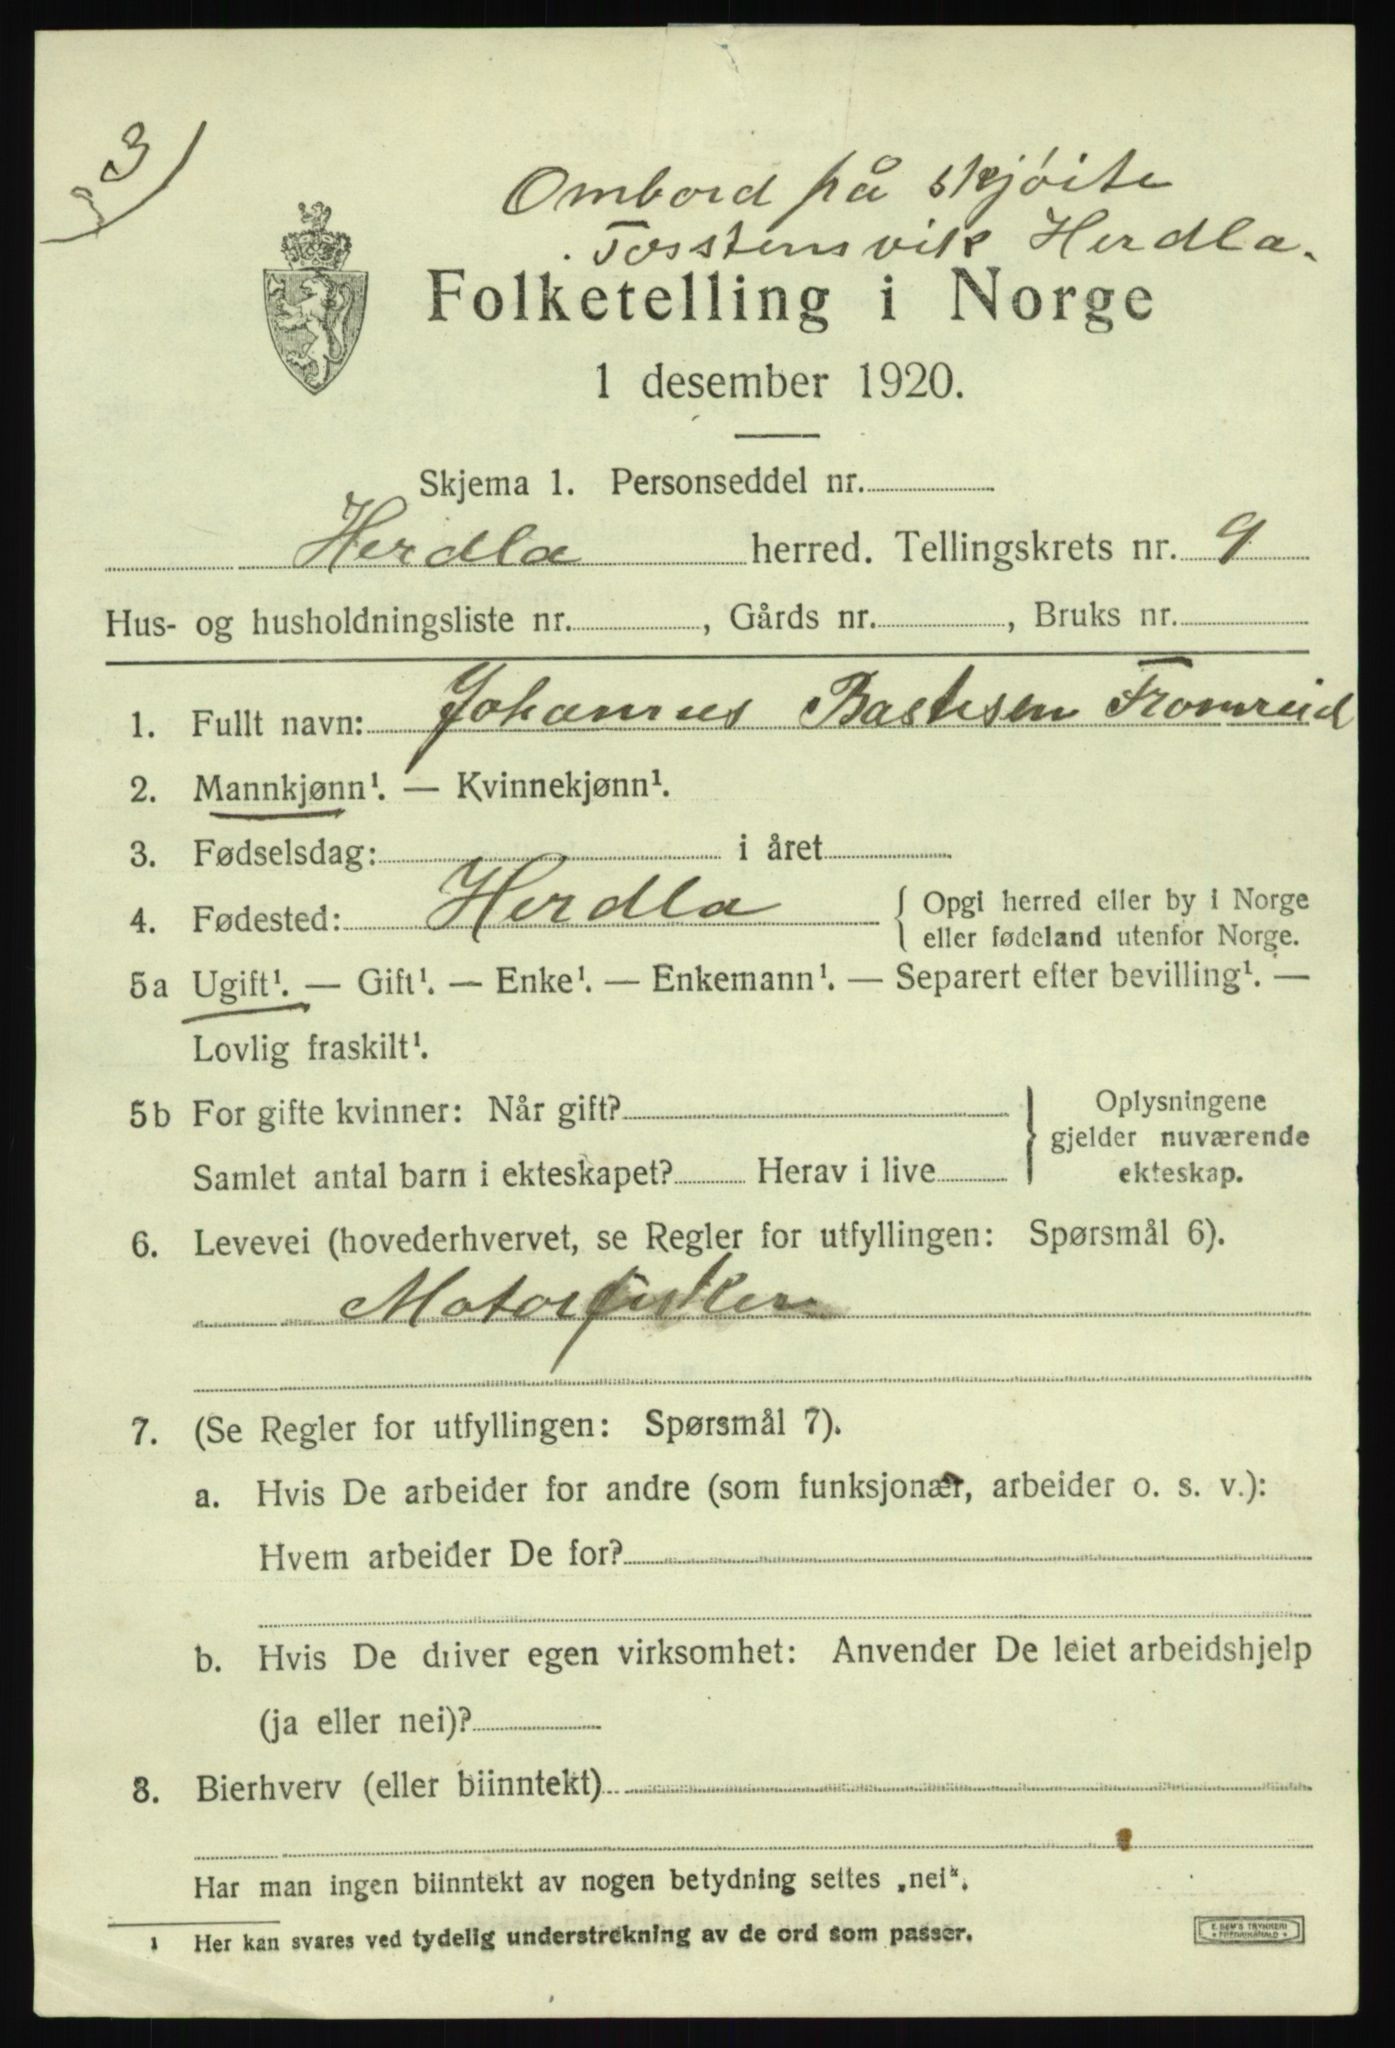 3)
Ombord på skjøite
Torstensvik Herdla.
Folketelling i Norge
1 desember 1920.
Skjema 1. Personseddel nr.
Herdla herred. Tellingskrets nr. 9
Hus- og husholdningsliste nr. , Gårds nr. , Bruks nr.
1. Fullt navn: Johannes Bastesen Fromreid
2. Mannkjønn¹. — Kvinnekjønn¹.
3. Fødselsdag: i året
4. Fødested: Herdla { Opgi herred eller by i Norge
eller fødeland utenfor Norge.
5a Ugift¹. — Gift¹. — Enke¹. — Enkemann¹. — Separert efter bevilling¹. —
Lovlig fraskilt¹.
5b For gifte kvinner: Når gift? } Oplysningene
gjelder nuværende
Samlet antal barn i ekteskapet? Herav i live ekteskap.
6. Levevei (hovederhvervet, se Regler for utfyllingen: Spørsmål 6).
Motorfisker
7. (Se Regler for utfyllingen: Spørsmål 7).
a. Hvis De arbeider for andre (som funksjonær, arbeider o. s. v.):
Hvem arbeider De for?
b. Hvis De driver egen virksomhet: Anvender De leiet arbeidshjelp
(ja eller nei)?
8. Bierhverv (eller biinntekt)
Har man ingen biinntekt av nogen betydning settes „nei“.
¹ Her kan svares ved tydelig understrekning av de ord som passer.
E. SEM'S TRYKKERI
FREDRIKSHALD